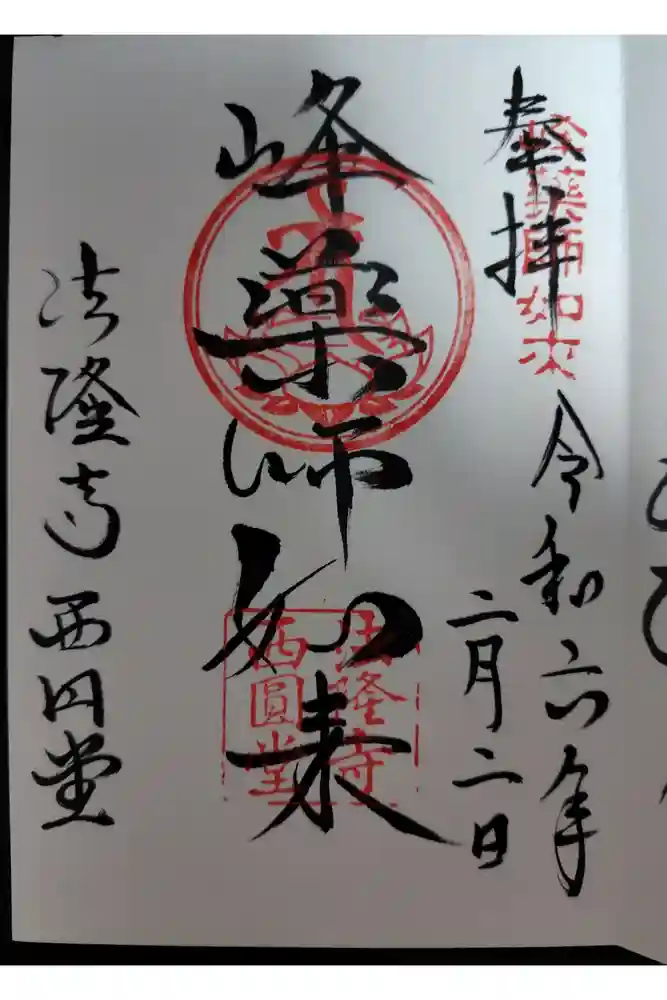 奉拝
峰薬師如来
令和六年
二月二日
峰薬師如来
法隆寺
西圓堂
法隆寺西円堂